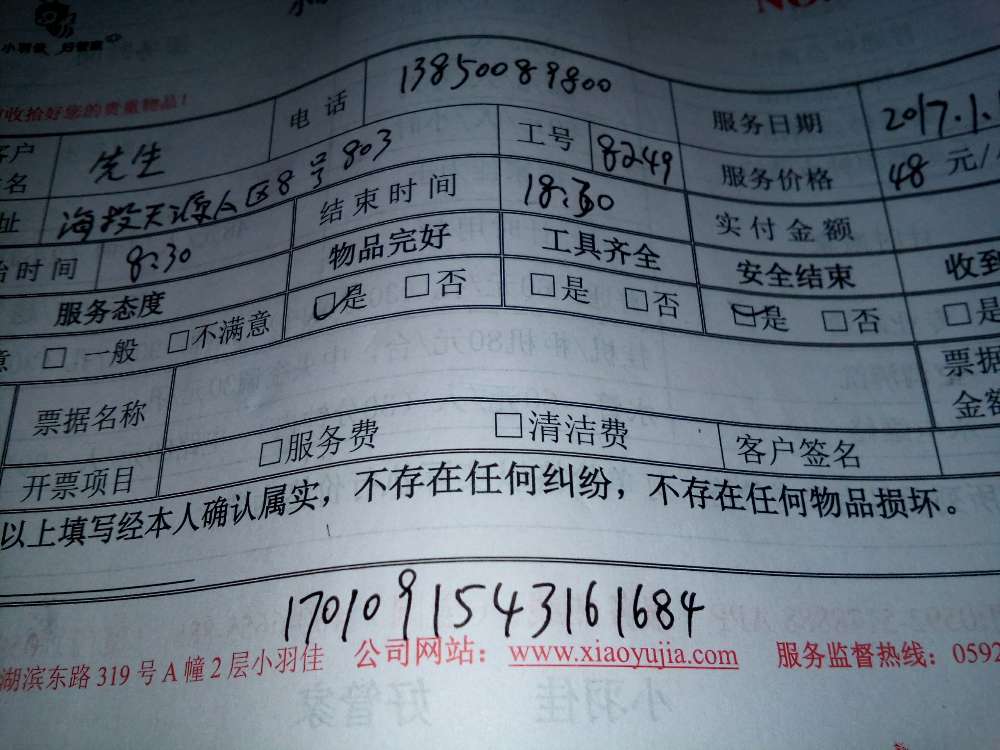 小羽佳 好管家
NO
收拾好您的贵重物品！
客户 先生 电话 13850089800 服务日期 2017.1.
名 工号 8249 服务价格 48 元/
址 海投天源A区8号803
始时间 8:30 结束时间 18:30 实付金额
服务态度 物品完好 工具齐全 安全结束 收到
意 □ 一般 □不满意 □是 □否 □是 □否 □是 □否 □是
票据名称 票据
金额
开票项目 □服务费 □清洁费 客户签名
以上填写经本人确认属实，不存在任何纠纷，不存在任何物品损坏。
1701091543161684
湖滨东路319号A幢2层小羽佳 公司网站：www.xiaoyujia.com 服务监督热线：0592